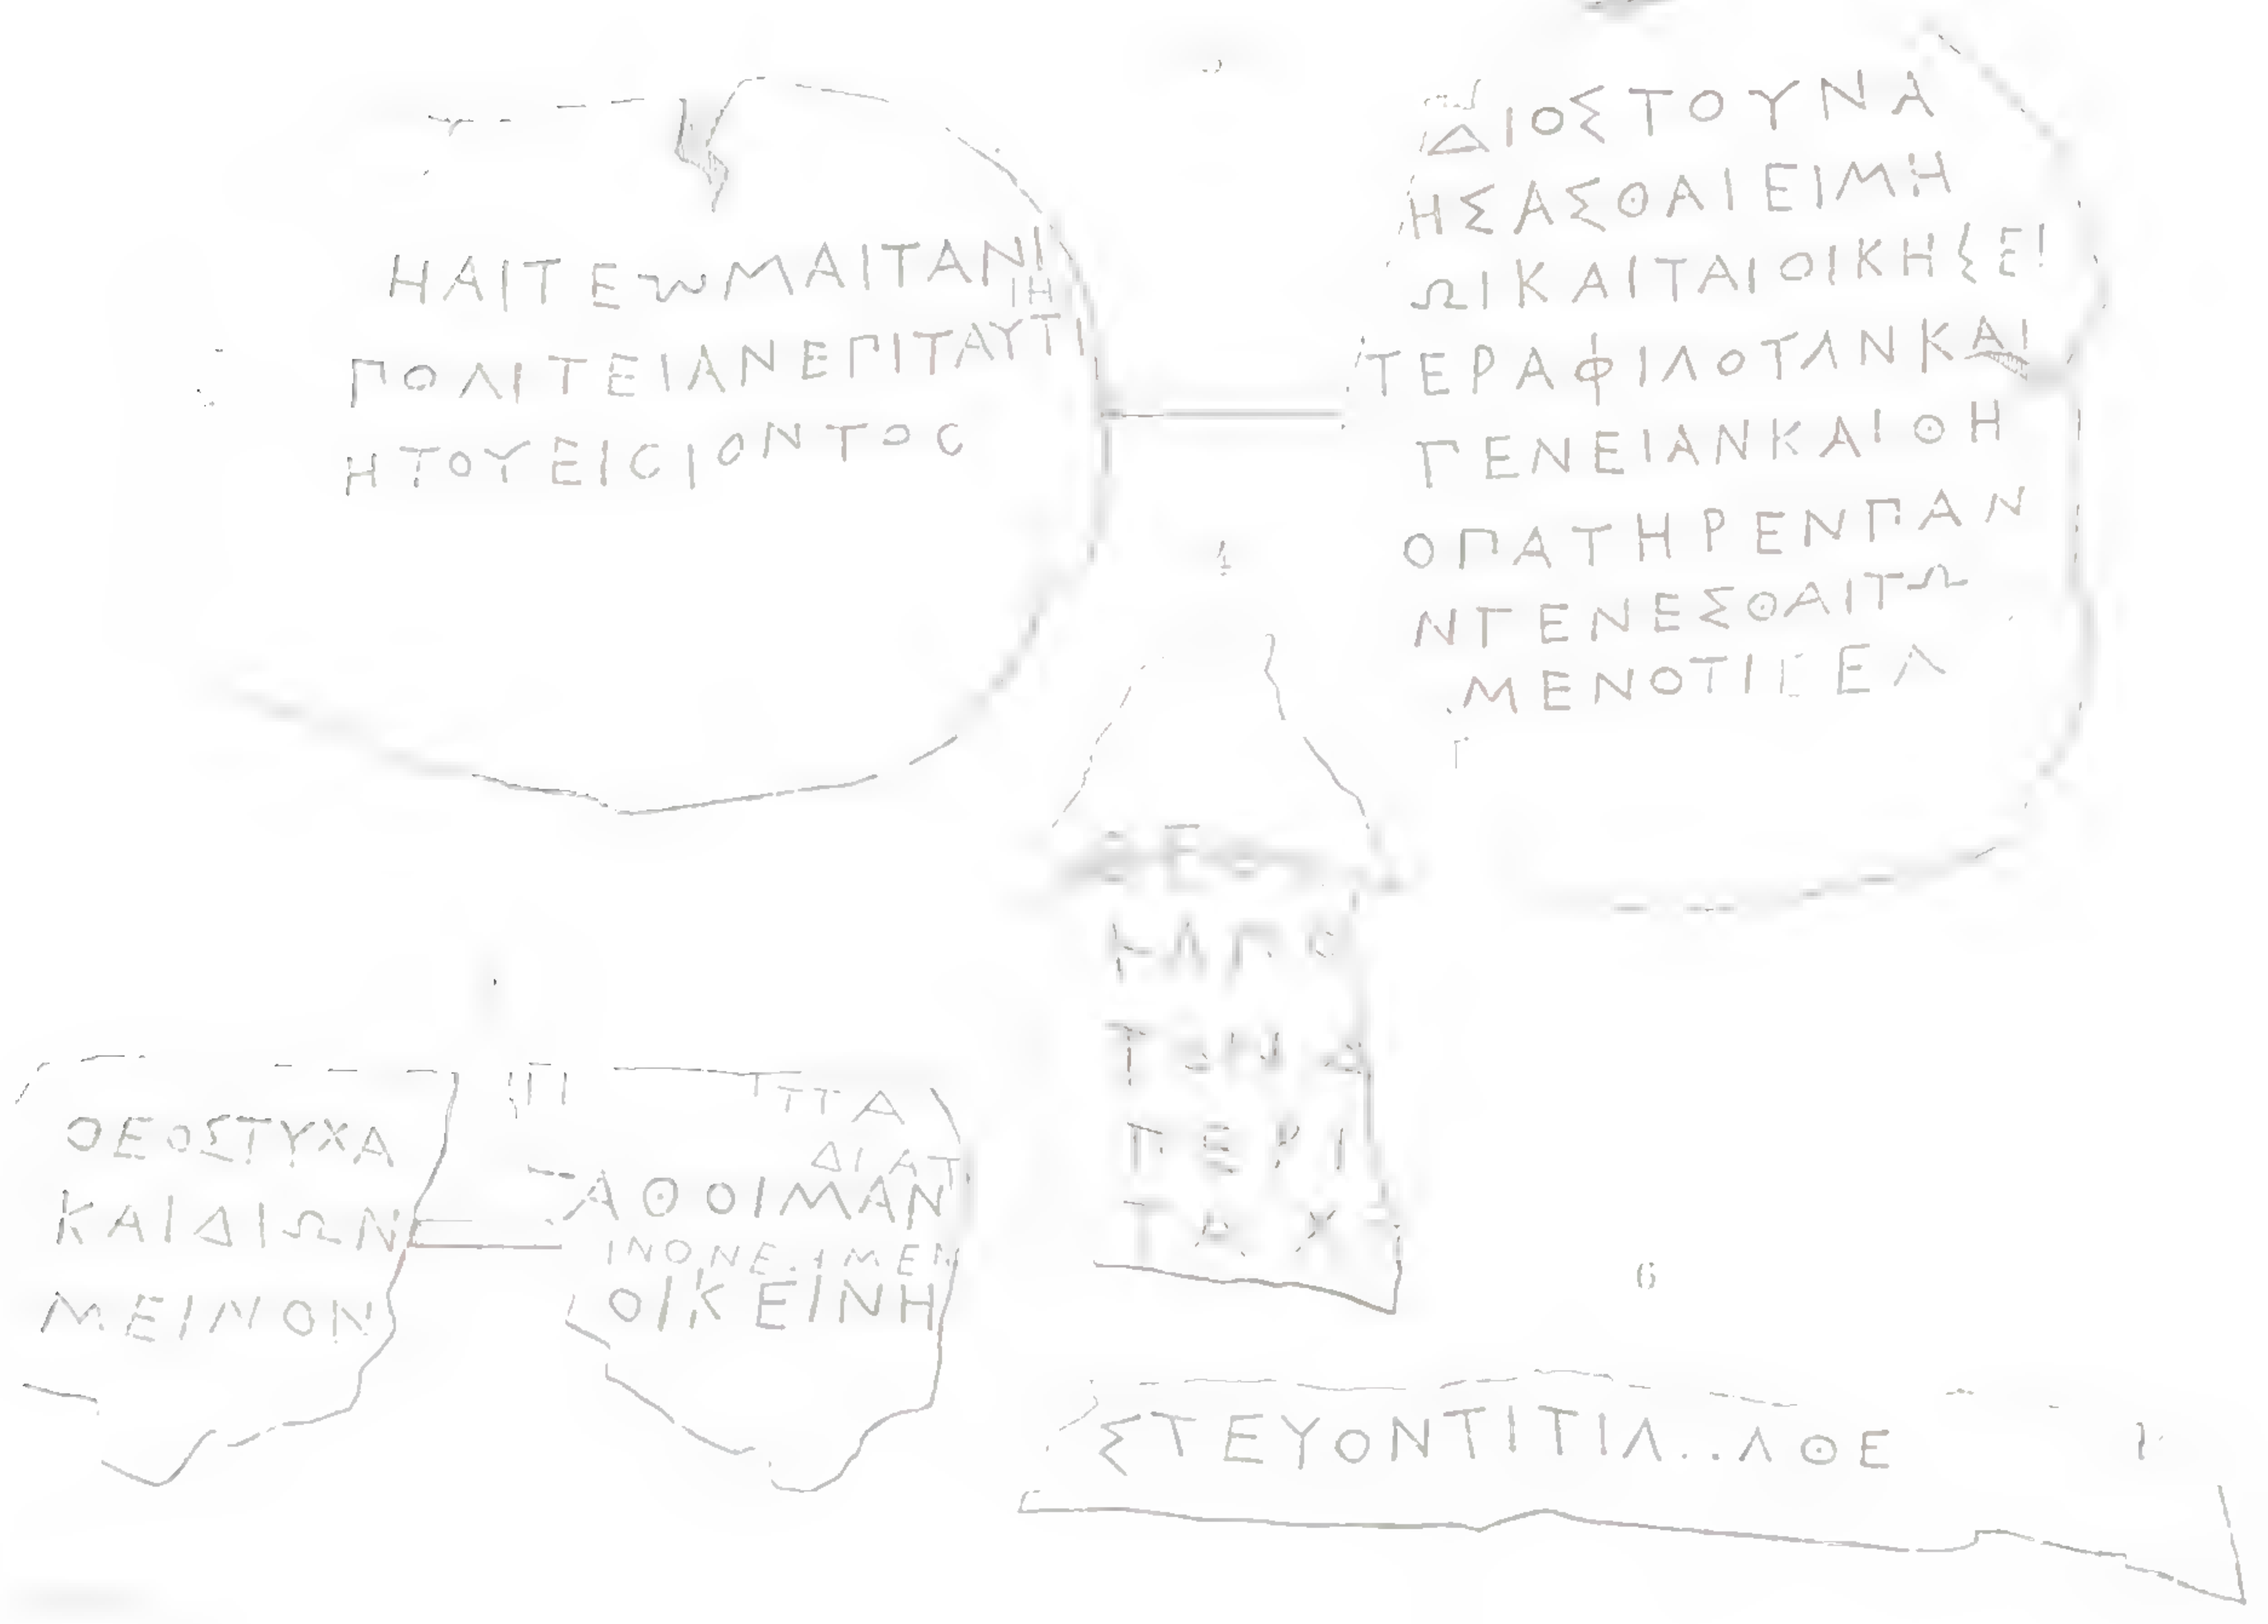 ΗΑΙΤΕωΜΑΙΤΑΝΙ
ΙΗ
ΠΟΛΙΤΕΙΑΝΕΠΙΤΑΥΤΙ
ΗΤΟΥΕΙCΙΟΝΤΟC
ΔΙΟΣΤΟΥΝΑ
ΗΣΑΣΘΑΙΕΙΜΗ
ΩΙΚΑΙΤΑΙΟΙΚΗΣΕΙ
ΤΕΡΑΦΙΛΟΤΛΝΚΑΙ
ΓΕΝΕΙΑΝΚΑΙΘΗ
ΟΠΑΤΗΡΕΝΠΑΝ
ΝΓΕΝΕΣΘΑΙΤΩ
ΜΕΝΟΤΙΓΕΛ
4
ΘΕΟ
ΤΑΧ
ΟΕΟΣΤΥΧΑ
ΚΑΙΔΙΩΝ
ΜΕΙΝΟΝ
ΔΙΑΤ
ΑΘΟΙΜΑΝ
ΙΝΟΝΕ.ΙΜΕΝ
ΟΙΚΕΙΝΗ
6
ΣΤΕΥΟΝΤΙΤΙΛ..ΛΘΕ